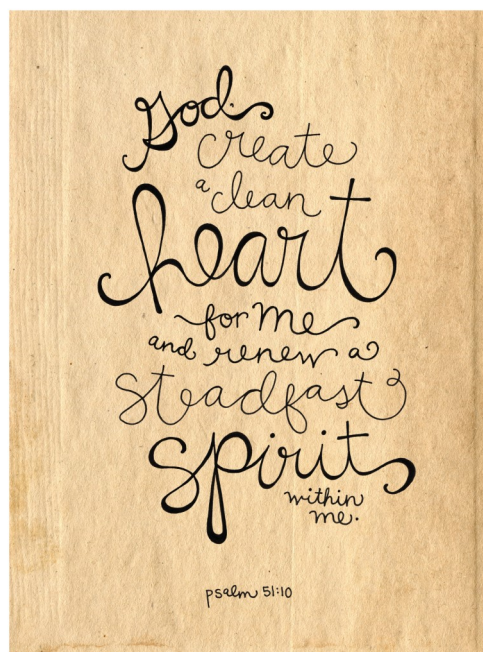 God
create
a clean
heart
for me
and renew a
steadfast
spirit
within
me.
psalm 51:10